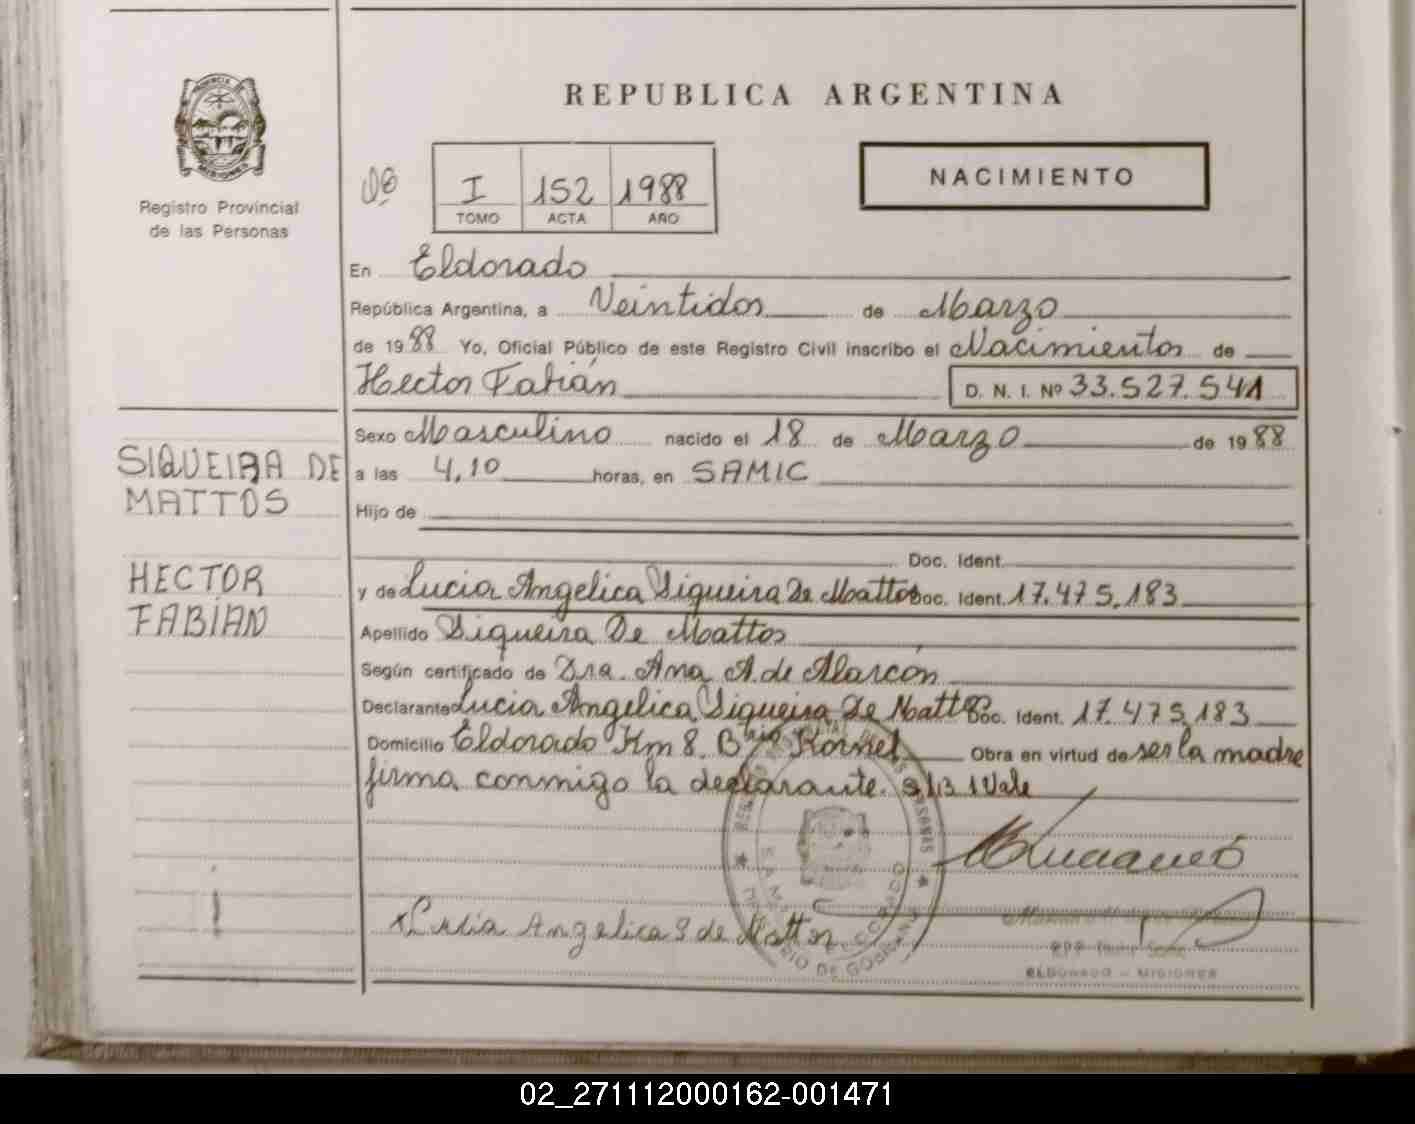 REPUBLICA ARGENTINA
PROVINCIA DE
MISIONES
Registro Provincial
de las Personas
I 152 1988
TOMO ACTA AÑO
NACIMIENTO
En Eldorado
República Argentina, a Veintidos de Marzo
de 1988 Yo, Oficial Público de este Registro Civil inscribo el Nacimientos de
Hector Fabián D. N. I. Nº 33.527.541
Sexo Masculino nacido el 18 de Marzo de 1988
SIQUEIRA DE
MATTOS
a las 4,10 horas, en SAMIC
Hijo de
Doc. Ident.
HECTOR
FABIAN
y de Lucia Angelica Siqueira De Mattos Doc. Ident. 17.475.183
Apellido Siqueira De Mattos
Según certificado de Dra. Ana A. de Alarcón
Declarante Lucia Angelica Siqueira De Mattos Doc. Ident. 17.475.183
Domicilio Eldorado Km 8. Brio Kornel Obra en virtud de ser la madre
firma conmigo la declarante. s/B 1 Vale
Lucia Angelica S de Mattos
ELDORADO - MISIONES
02_271112000162-001471